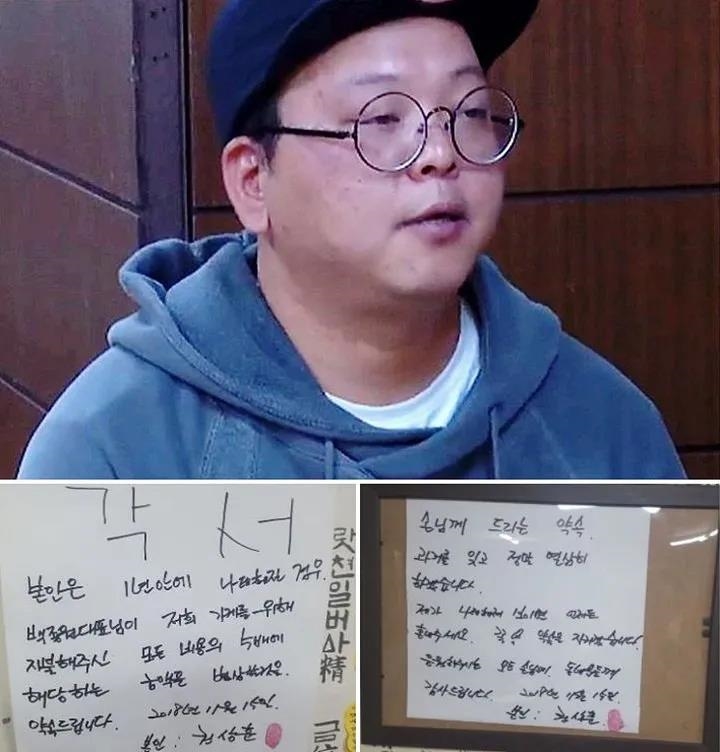 각서
본인은 1년안에 나태해질 경우,
백종원대표님이 저희 가게를 위해
지불해주신 모든 비용의 5배에
해당하는 금액을 변상할것을
약속드립니다. 2018년 11월 15일.
본인 :
랏천일버사精
손님께 드리는 약속.
과거를 잊고 정말 열심히
하겠습니다.
제가 나태해져 보이면 언제든
혼내주세요. 꼭 약속을 지키겠습니다.
응원해주시는 모든 손님께, 동네분들께
감사드립니다. 2018년 11월 15일.
본인 :